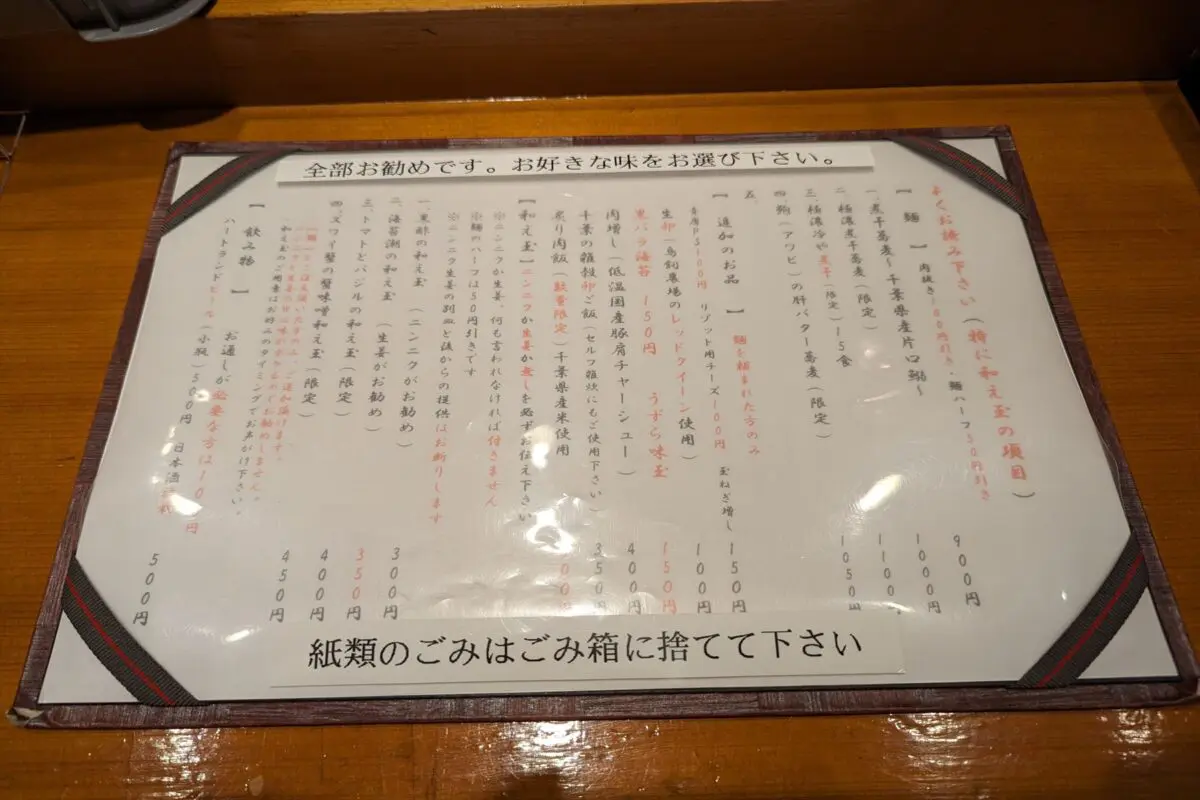 全部お勧めです。お好きな味をお選び下さい。
よくお読み下さい(特に和え玉の項目)
【 麺 】 肉抜き100円引き・麺ハーフ50円引き
一、煮干蕎麦~千葉県産片口鰯~
900円
二、極濃煮干蕎麦(限定)
1000円
三、極濃冷や煮干し(限定)15食
1100円
四、鮑(アワビ)の肝バター蕎麦(限定)
1050円
五、
【 追加のお品 】 麺を頼まれた方のみ
リゾット用チーズ100円 玉ねぎ増し
150円
生卵(鳥創農場のレッドクイーン使用)
100円
黒バラ海苔 150円 うずら味玉
150円
肉増し(低温国産豚肩チャーシュー)
400円
千葉の雑穀卵ご飯(セルフ雑炊にもご使用下さい)
350円
炙り肉飯(数量限定)千葉県産米使用
【和え玉】ニンニクか生姜か無しを必ずお伝え下さい
※ニンニクか生姜、何も言われなければ付きません
※麺のハーフは50円引きです
※ニンニク生姜の別皿と後からの提供はお断りします
一、黒酢の和え玉 (ニンニクがお勧め)
300円
二、海苔潮の和え玉 (生姜がお勧め)
350円
三、トマトとバジルの和え玉(限定)
400円
四、ズワイ蟹の蟹味噌和え玉(限定)
450円
和え玉のご用意はお好みのタイミングでお声がけ下さい。
【 飲み物 】 お通しが必要な方は
ハートランドビール(小瓶)500円 日本酒
500円
紙類のごみはごみ箱に捨てて下さい